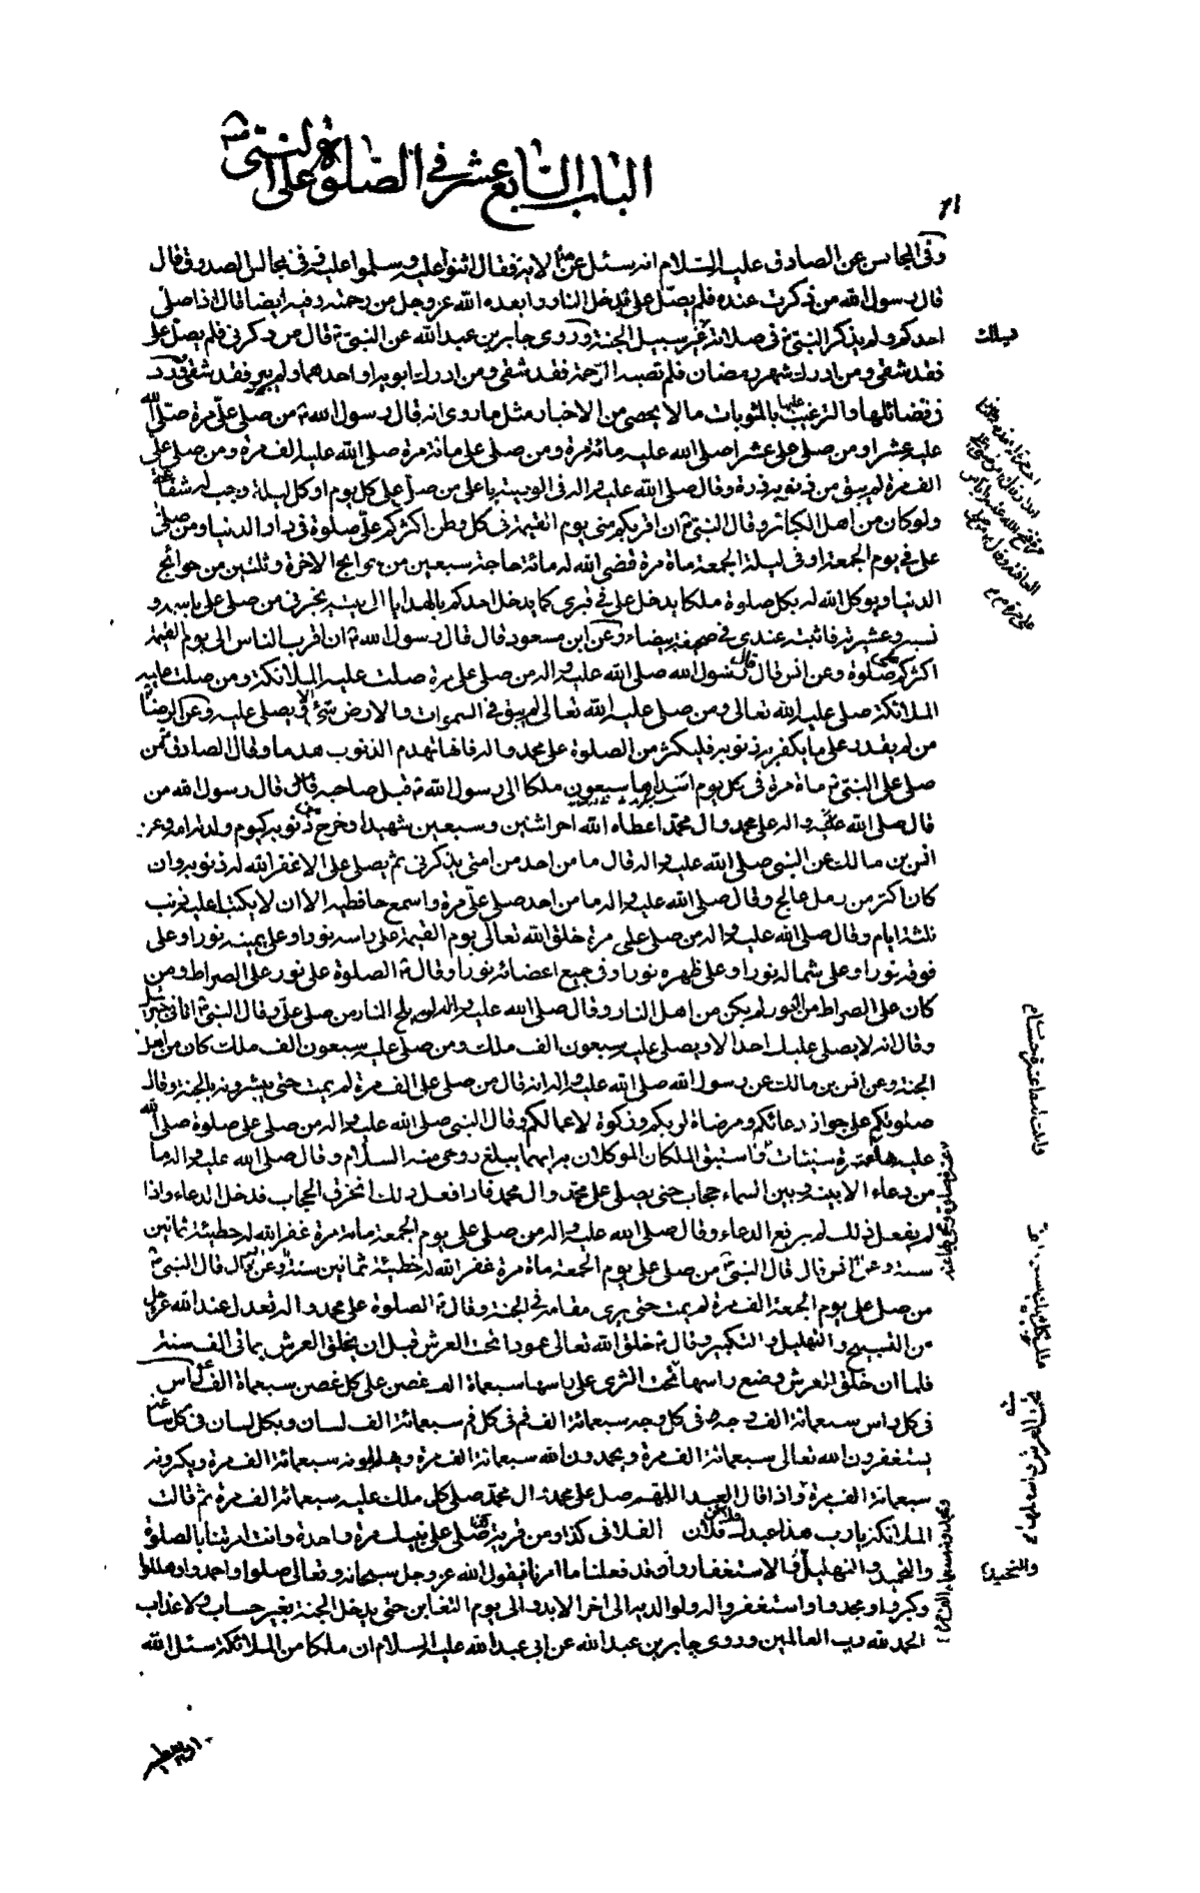 الباب السابع عشر في الصلوة على النبي ص
٦١
وفى المجالس عن الصادق عليه السلام انه سئل عن هذه الاية فقال اثنوا عليه وسلموا عليه وفى مجالس الصدوق قال
قال رسول الله من ذكرت عنده فلم يصل على فدخل النار وابعده الله عز وجل من رحمته وفيه ايضا قال اذا صلى
احدكم ولم يذكر النبي ص في صلاته غير سبيل الجنة وروى جابر بن عبد الله عن النبي ص قال من ذكرني فلم يصل على
فقد شقى ومن ادرك شهر رمضان فلم تصبه الرحمة فقد شقى ومن ادرك ابويه او احدهما ولم يبر فقد شقى وقد ورد
في فضائلها والترغيب عليها بالمثوبات ما لا يحصى من الاخبار مثل ما روى انه قال رسول الله ص من صلى على مرة صلى الله
عليه عشرا ومن صلى على عشرا صلى الله عليه مائة مرة ومن صلى على مائة مرة صلى الله عليه الف مرة ومن صلى على
الف مرة لم يبق من ذنوبه ذرة وقال صلى الله عليه واله في الوصية يا على من صلى على كل يوم او كل ليلة وجبت له شفاعتى
ولو كان من اهل الكبائر وقال النبي ص ان اقربكم منى يوم القيمة في كل وطن اكثركم على صلوة في دار الدنيا ومن صلى
على في يوم الجمعة او في ليلة الجمعة ماة مرة قضى الله له مائة حاجة سبعين من حوائج الاخرة وثلثين من حوائج
الدنيا ويوكل الله له بكل صلوة ملكا يدخل على في قبرى كما يدخل احدكم بالهدايا الى بيته يخبرني من صلى على باسمه و
نسبه وعشيرته فاثبته عندى في صحيفة بيضاء وعن ابن مسعود قال قال رسول الله ص ان اقرب الناس الى يوم القيمة
اكثركم على صلوة وعن انس قال قال رسول الله صلى الله عليه واله من صلى على مرة صلت عليه الملائكة ومن صلت عليه
الملائكة صلى عليه الله تعالى ومن صلى عليه الله تعالى لم يبق في السموات والارض شئ الا ويصلى عليه وعن الرضا
من لم يقدر على ما يكفر به ذنوبه فليكثر من الصلوة على محمد واله فانها تهدم الذنوب هدما وقال الصادق من
صلى على النبي ص ماة مرة في كل يوم ابتدرها سبعون ملكا الى رسول الله ص قبل صاحبه قال قال رسول الله من
قال صلى الله عليه واله على محمد وال محمد اعطاه الله اجر اثنين وسبعين شهيدا وخرج من ذنوبه كيوم ولدته امه وعن
انس بن مالك عن النبي صلى الله عليه واله قال ما من احد من امتى يذكرني ثم يصلى على الا غفر الله له ذنوبه وان
كان اكثر من رمل عالج وقال صلى الله عليه واله ما من احد صلى على مرة واسمع حافظيه الا ان لا يكتبا عليه ذنب
ثلثة ايام وقال صلى الله عليه واله من صلى على مرة خلق الله تعالى يوم القيمة على راسه نورا وعلى يمينه نورا وعلى
فوقه نورا وعلى شماله نورا وعلى ظهره نورا وفي جميع اعضائه نورا وقال ص الصلوة على نور على الصراط ومن
كان على الصراط من النور لم يكن من اهل النار وقال صلى الله عليه واله لم يلج النار من صلى على وقال النبي ص اتاني جبرئيل
وقال انه لا يصلى عليك احد الا ويصلى عليه سبعون الف ملك ومن صلى عليه سبعون الف ملك كان من اهل
الجنة وعن انس بن مالك عن رسول الله صلى الله عليه واله انه قال من صلى على الف مرة لم يمت حتى يبشر بالجنة وقال
صلوتكم على جواز دعائكم ومرضاة لربكم وزكوة لاعمالكم وقال النبي صلى الله عليه واله من صلى على صلوة صلى الله
من دعاء الا بينه وبين السماء حجاب حتى يصلى على محمد وال محمد فاذا فعل ذلك انخرق الحجاب فدخل الدعاء واذا
لم يفعل ذلك لم يرفع الدعاء وقال صلى الله عليه واله من صلى على يوم الجمعة مائة مرة غفر الله له خطيئة ثمانين
من صلى على يوم الجمعة الف مرة لم يمت حتى يرى مقامه في الجنة وقال ص الصلوة على محمد واله تعدل عند الله عز وجل
من التسبيح والتهليل والتكبير وقال ص خلق الله تعالى عمودا تحت العرش قبل ان يخلق العرش بمائى الف سنة
فلما ان خلق العرش وضع راسها تحت الثرى على راسها سبعماة الف غصن على كل غصن سبعماة الف راس
في كل راس سبعمائة الف وجه وفي كل وجه سبعمائة الف فم في كل فم سبعمائة الف لسان وبكل لسان في كل ساعة
يستغفرون الله تعالى سبعمائة الف مرة ويحمدون الله سبعمائة الف مرة ويهللونه سبعمائة الف مرة ويكبرونه
سبعمائة الف مرة واذا قال العبد اللهم صل على محمد وال محمد صلى كل ملك عليه سبعمائة الف مرة ثم قالت
الملائكة يا رب هذا عبدك فلان الفلاني كذا ومن قرية كذا صلى على نبيك مرة واحدة وانت امرتنا بالصلوة
والتحميد والتهليل والاستغفار وقد فعلنا ما امرتنا فيقول الله عز وجل سبحانه وتعالى صلوا واحمدوا وهللوا
وكبروا ومجدوا واستغفروا له ولوالديه الى اخر الابد والى يوم التغابن حتى يدخل الجنة بغير حساب ولا عذاب
الحمد لله رب العالمين وروى جابر بن عبد الله عن ابي عبد الله عليه السلام ان ملكا من الملائكة سئل الله
والتحميد